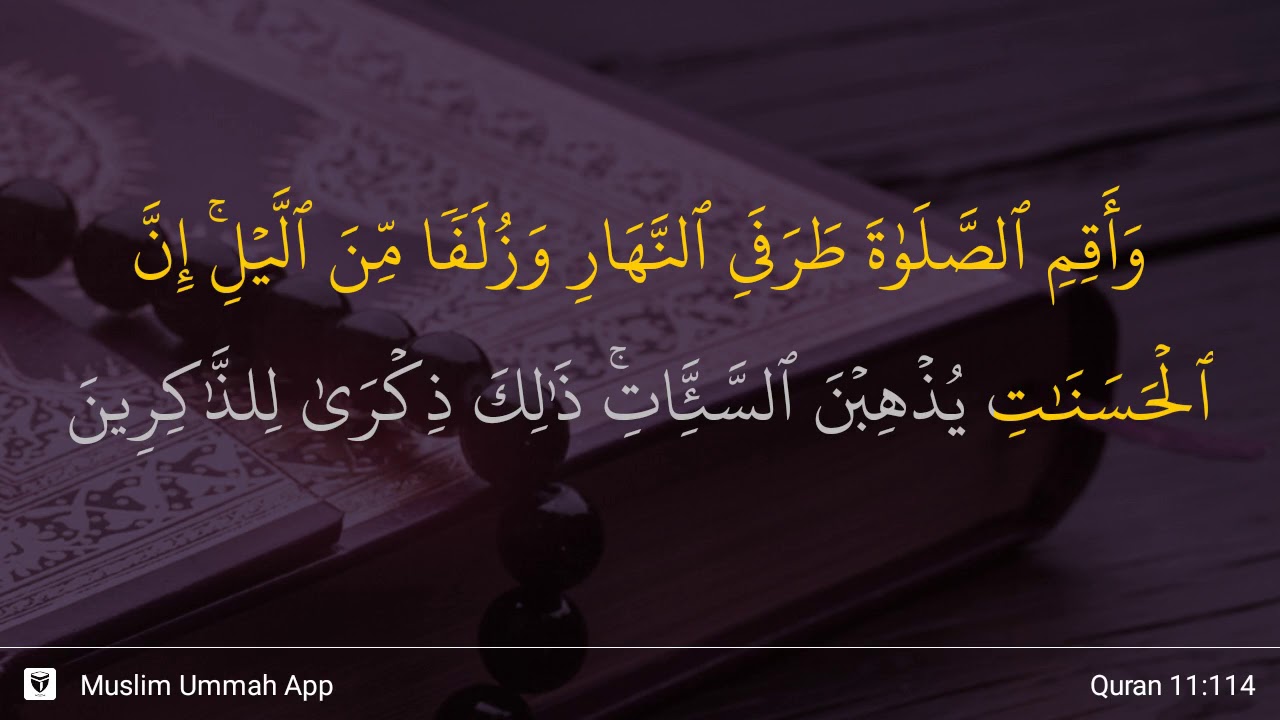 وَأَقِمِ ٱلصَّلَوٰةَ طَرَفَيِ ٱلنَّهَارِ وَزُلَفًا مِّنَ ٱلَّيْلِ ۚ إِنَّ
ٱلْحَسَنَٰتِ يُذْهِبْنَ ٱلسَّيِّـَٔاتِ ۚ ذَٰلِكَ ذِكْرَىٰ لِلذَّٰكِرِينَ
Muslim Ummah App
Quran 11:114